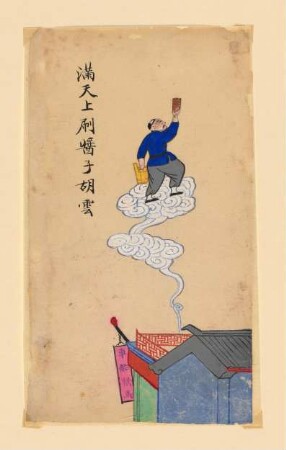 滿天上刷醬子胡雲